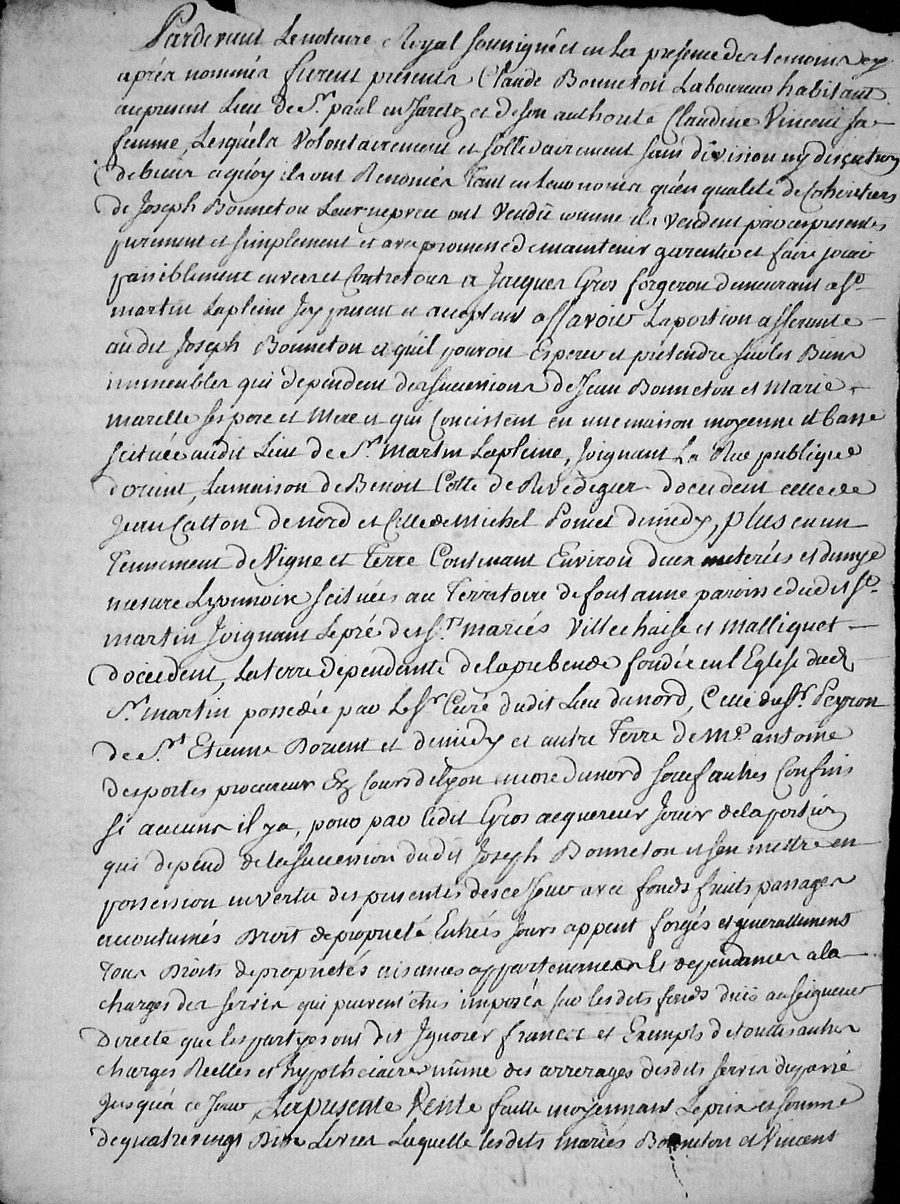 Pardevant Le notaire Royal soussigné et en la presence des temoins cy
aprés nommés furent presents Claude Bonneton Laboureur habitant
au present Lieu de St. paul en Jaretz et de son authorité Claudine Vincent sa
femme, Lesquels Volontairement et sollidairement sans division ny discution
de biens a quoy ils ont Renoncés Tant en Leurs noms qu'en qualité de Coheritiers
de Joseph Bonneton Leur neveu ont Vendu comme ils Vendent par ces presentes
purement et simplement et avec promesse de maintenir garentir et faire jouir
paisiblement envers et Contre tous a Jacques Gros forgeron demeurant a St.
martin Lapleine Icy present et acceptant assavoir La portion afferante
audit Joseph Bonneton et qu'il pouvoit Esperer et pretendre sur les Biens
immeubles qui dependent des successions de Jean Bonneton et Marie
marelle ses pere et Mere et qui Concistent en une maison moyenne et basse
scituée audit Lieu de St. martin Lapleine, Joignant La Rue publique
d'orient, La maison de Benoit Cotte de Rivedegier d'occident celle de
Jean Catton de nord et Celle de Michel Poncet de midy, plus en un
Tennement de Vigne et Terre Contenant Environ deux meterées et demye
mesure Lyonnoise scituées au Territoire de fontanne paroisse dudit St.
martin Joignant Le pré des Srs. mariés Villechaise et Malliquet
d'occident, La terre dépendante de la prebende fondée en l'Eglise dud.
St. martin possedée par Le Sr. Curé dudit Lieu de nord, Celle du Sr. Peyron
de St. Etienne D'orient et de midy et autre Terre de Me. antoine
desportes procureur Ez Cours de Lyon encore de nord sauf autres Confins
si aucuns il y a, pour par ledit Gros acquereur Jouir de la portion
qui depend de la succession dudit Joseph Bonneton et s'en mettre en
possession en vertu des presentes des ce Jour avec fonds fruits passages
accoutumés Droit de proprieté Entrées Jours appent forgés et generallement
Tous Droits de propriétés aisances appartenances Et dependances a la
charges des servis qui peuvent êtres imposés sur lesdits fonds dûs au seigneur
Directe que les partyes ont dit Ignorer francs et Exempts de toutes autres
charges Réelles et hypothécaires même des arrerages desdits servis du passé
Jusqu'a ce Jour, La presente Vente faitte moyennant Le prix et somme
de quatre vingt Dix Livres Laquelle lesdits mariés Bonneton et Vincent